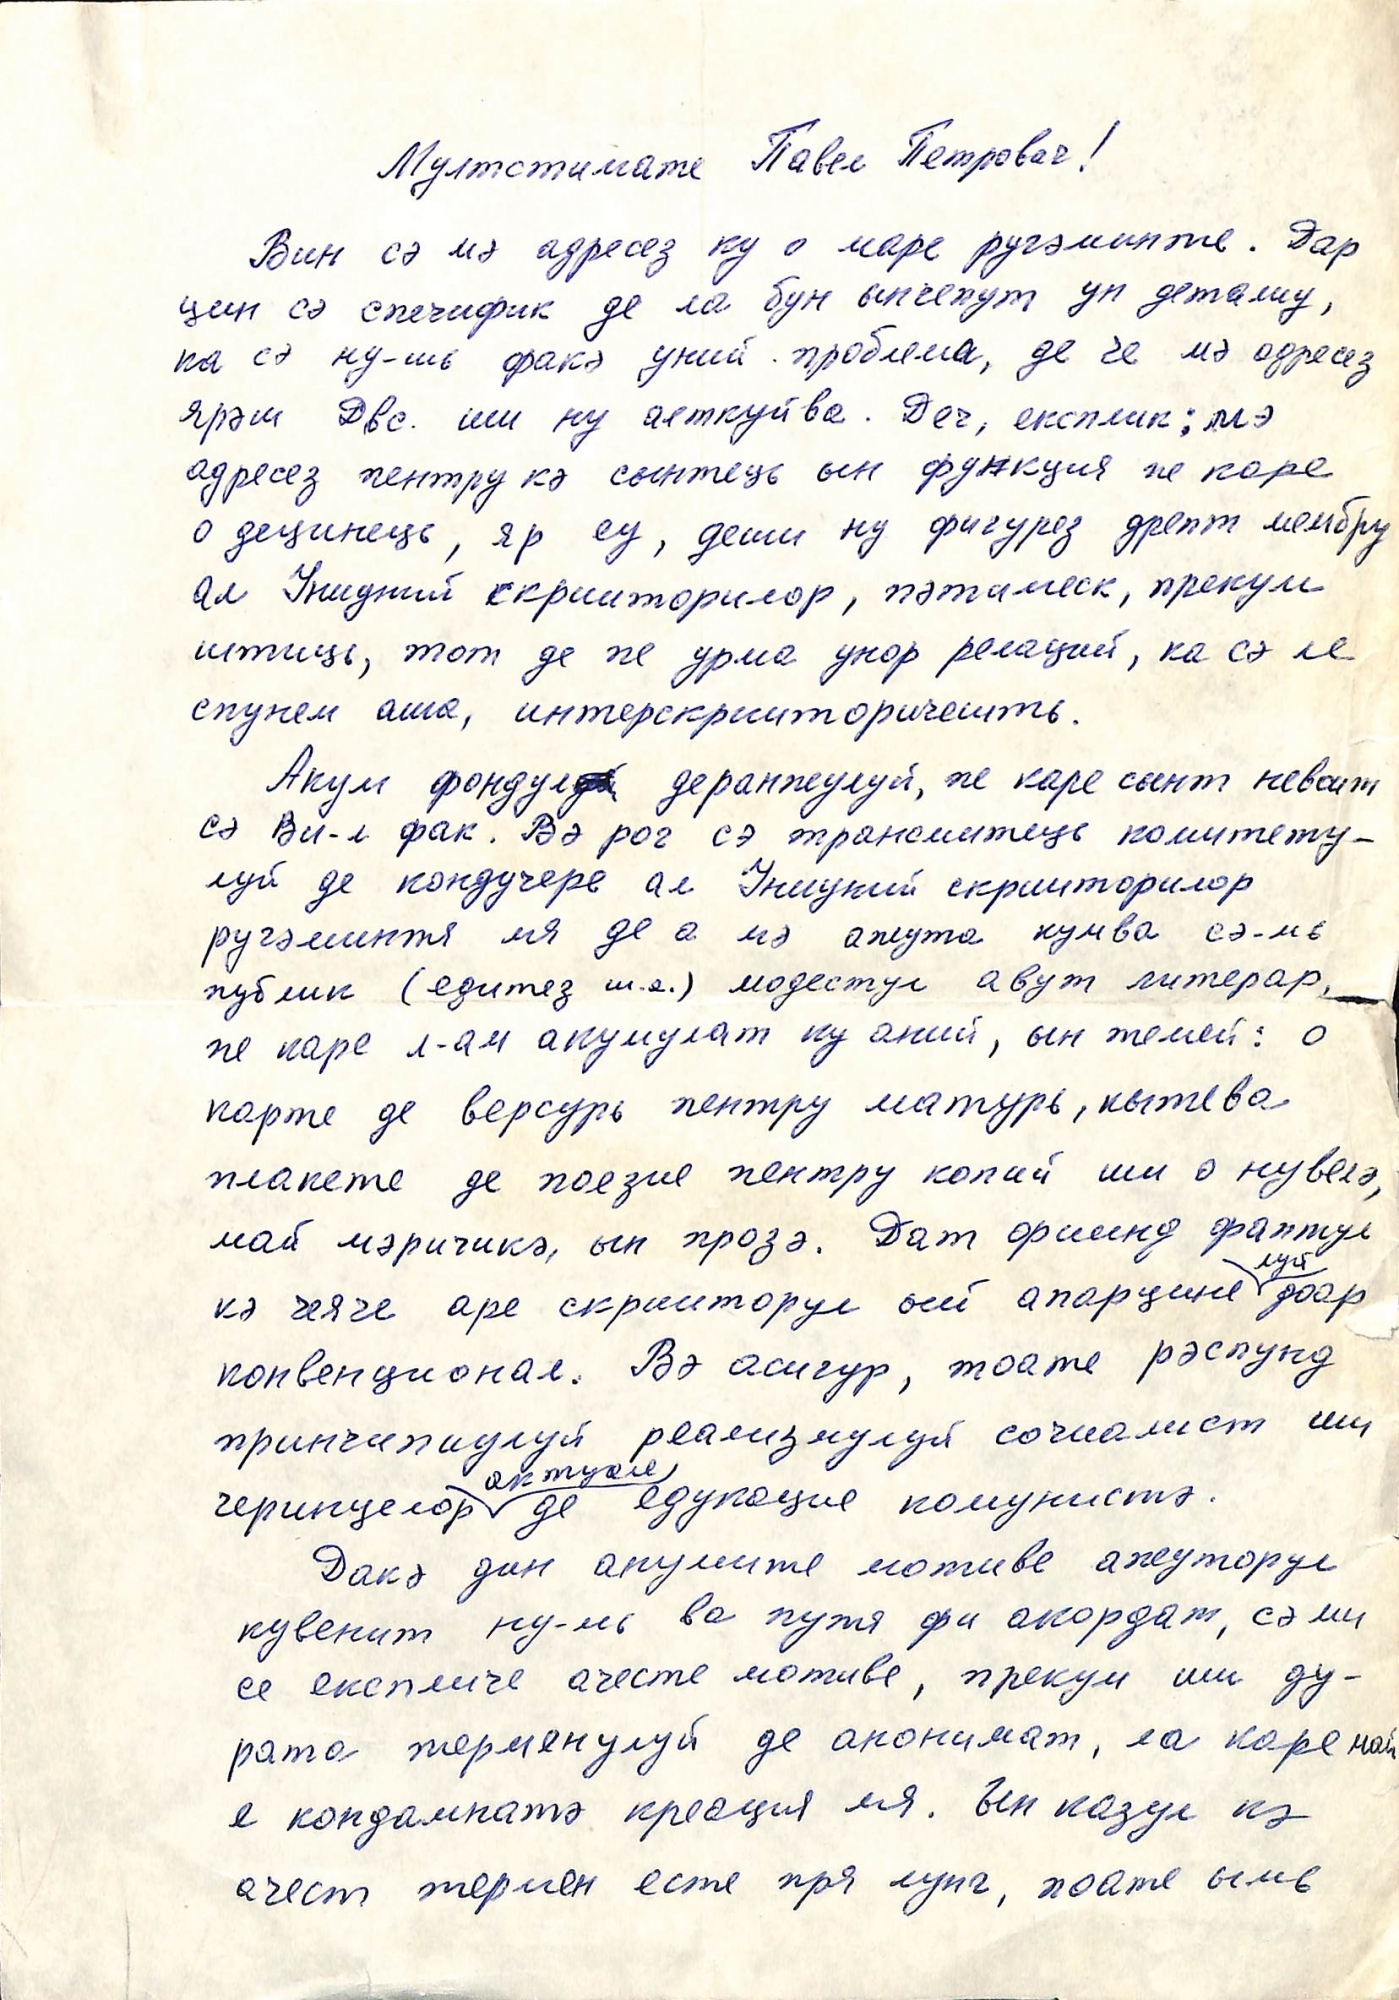 Мултстимате Павел Петрович!
Вин сэ мэ адресез ку о маре ругэминте. Дар
цин сэ спечифик де ла бун ынчепут ун деталиу,
ка сэ ну-шь факэ уний проблема, де че мэ адресез
ярэш Двс. ши ну алткуйва. Деч, експлик: мэ
адресез пентру кэ сынтець ын функция пе каре
о децинець, яр еу, деши ну фигурез дрепт мембру
ал Униуний скрииторилор, пэтимеск, прекум
штиць, тот де пе урма унор релаций, ка сэ ле
спунем аша, интерскрииторичешть.
Акум фондул деранжулуй, пе каре сынт невоит
сэ Ви-л фак. Вэ рог сэ трансмитець комитету-
луй де кондучере ал Униуний скрииторилор
ругэминтя мя де а мэ ажута кумва сэ-мь
публик (едитез ш.а.) модестул авут литерар,
пе каре л-ам акумулат ку аний, ын темей: о
карте де версурь пентру матурь, кытева
плакете де поезие пентру копий ши о нувелэ,
май мэричикэ, ын прозэ. Дат фиинд фаптул
кэ чеяче аре скрииторул ый апарцине луй доар
конвенционал. Вэ асигур, тоате рэспунд
принчипиулуй реализмулуй сочиалист ши
черинцелор актуале де едукацие комунистэ.
Дакэ дин анумите мотиве ажуторул
кувенит ну-мь ва путя фи акордат, сэ ми
се експличе ачесте мотиве, прекум ши ду-
рата терменулуй де анонимат, ла каре май
е кондамнатэ креация мя. Ын казул кэ
ачест термен есте пря лунг, поате ымь